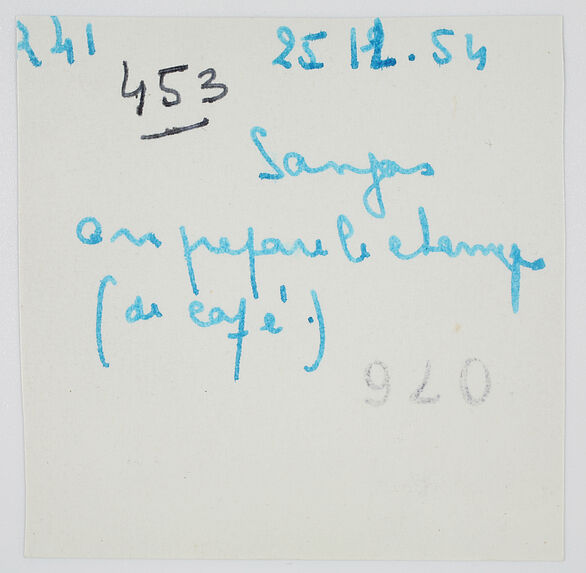 241 25 12.54
453
Sanjas
on prepare le champ
(de café.)
076